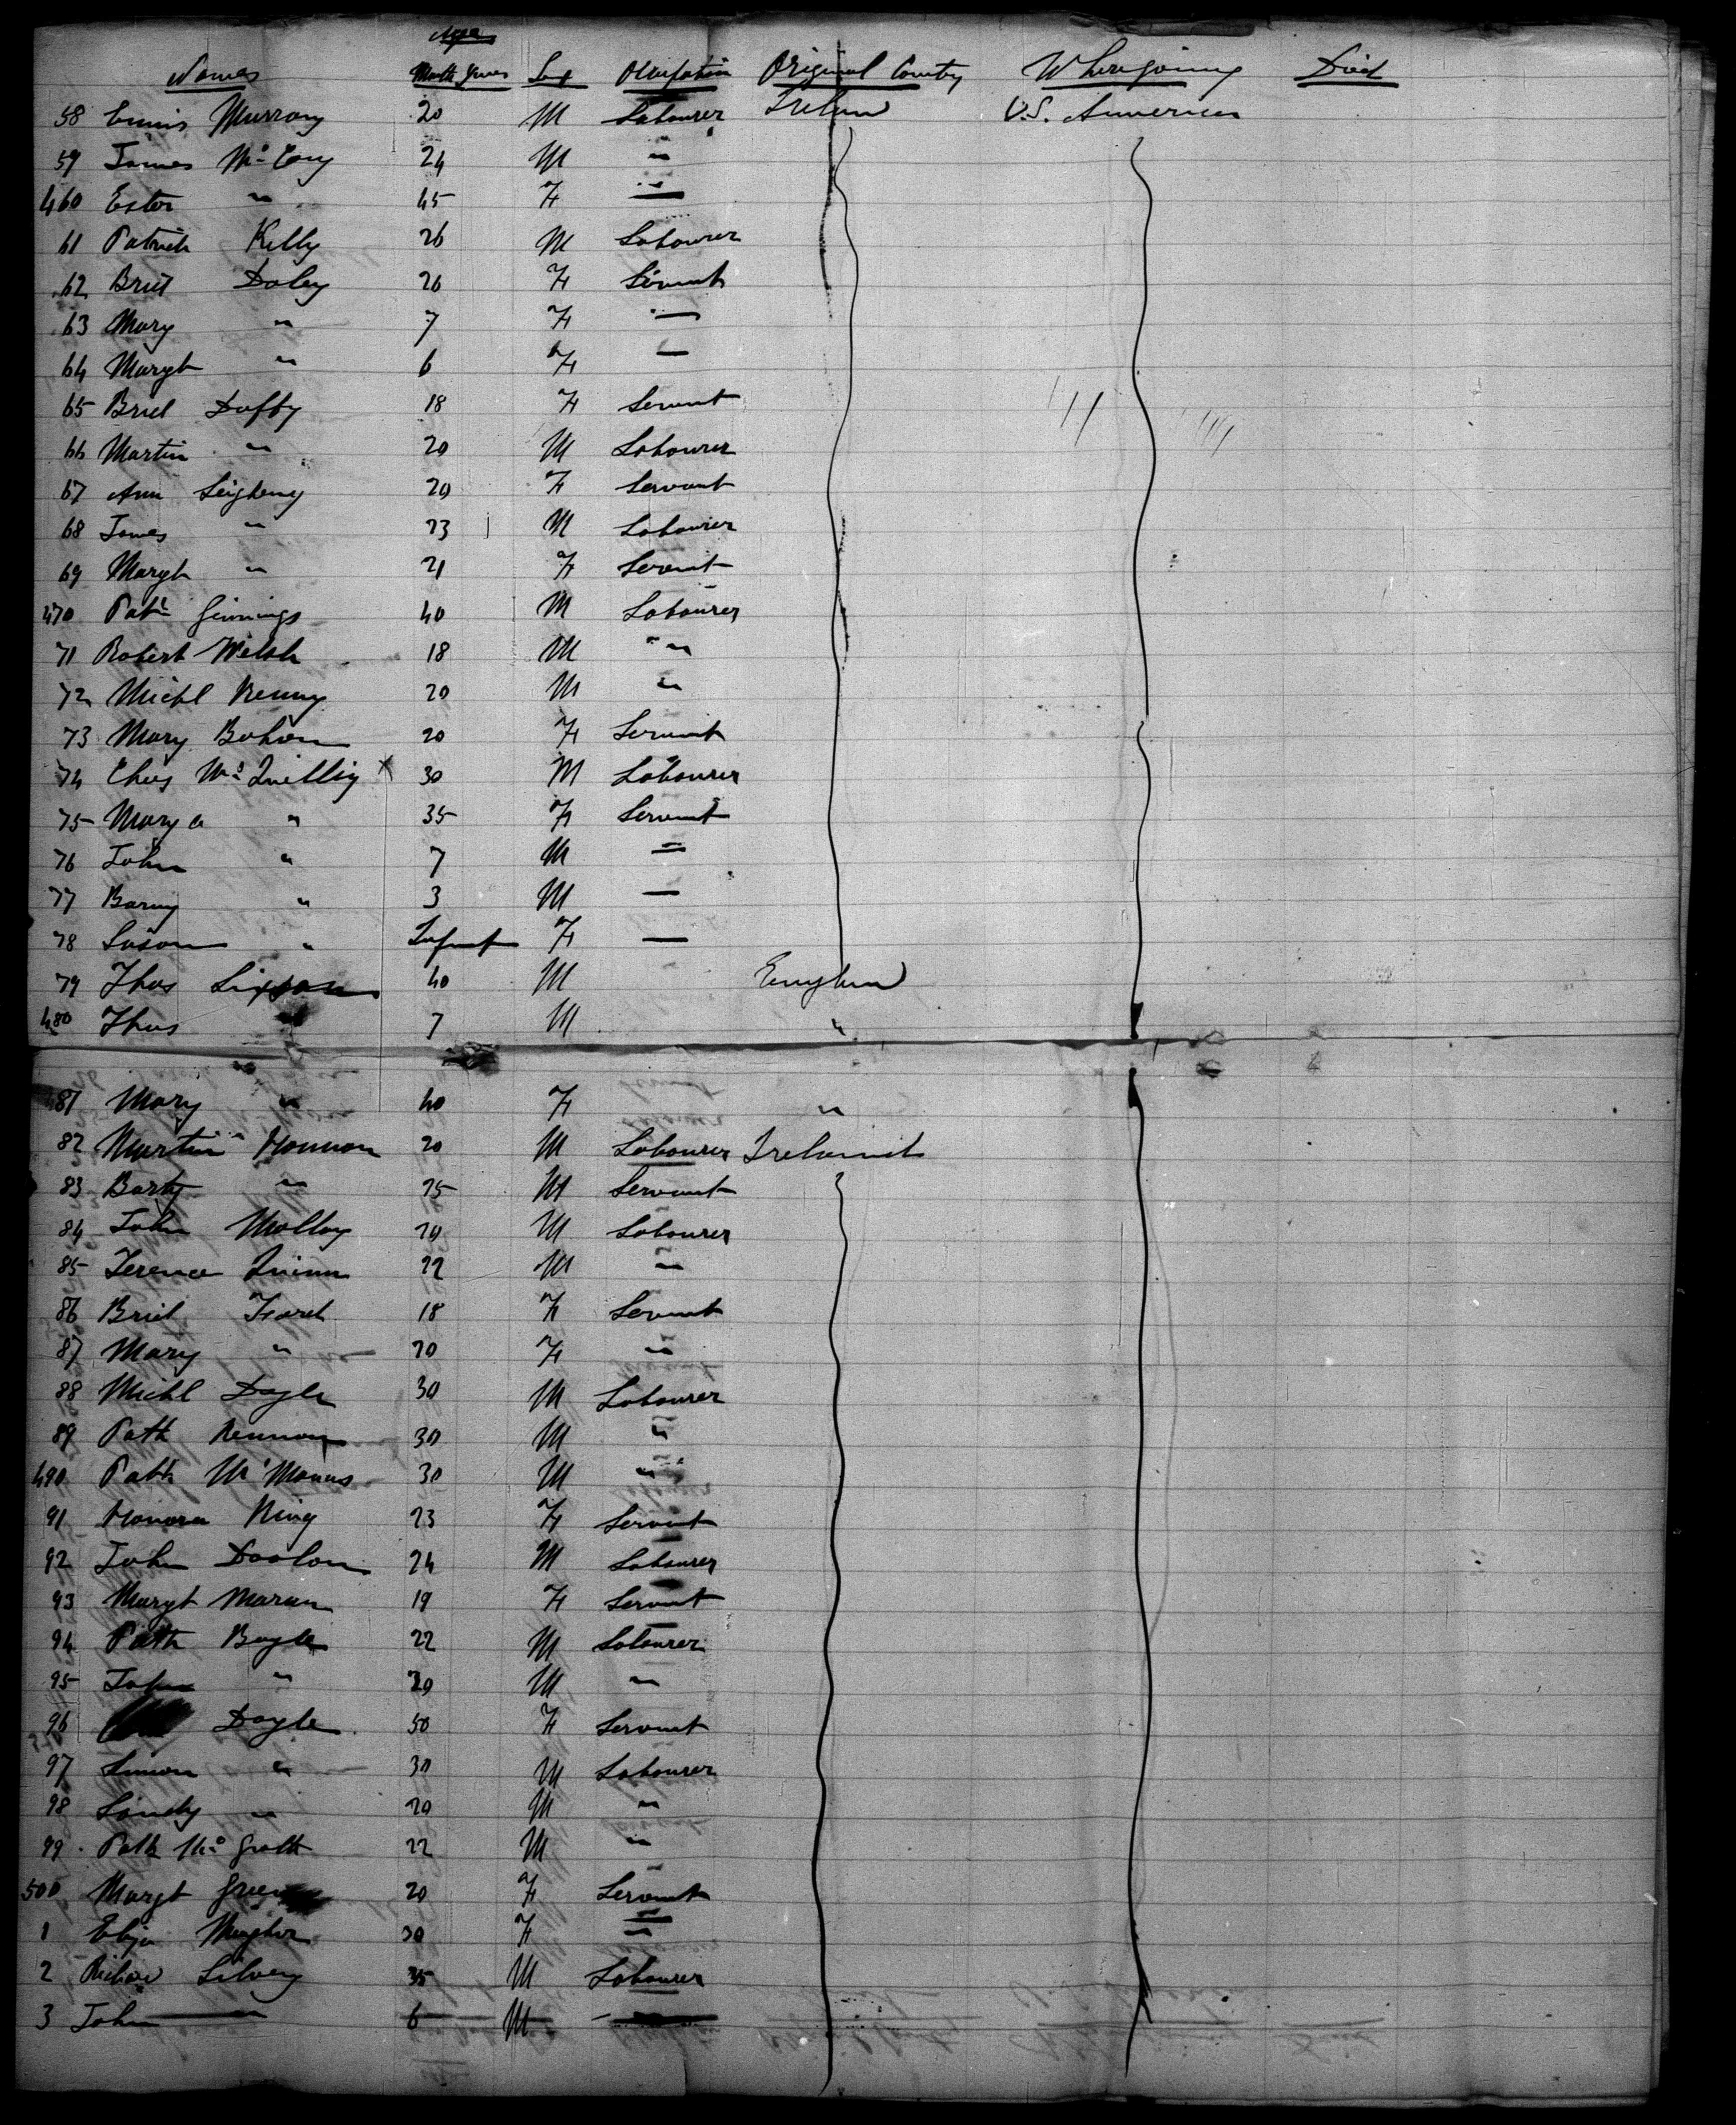 Age
Names Month Years Sex Occupation Original County Where going Died
58 Ennis Murray 20 M Labourer Irelan U.S. America
59 James McCoy 24 M "
460 Ester " 45 F —
61 Patrick Kelly 26 M Labourer
62 Brid Daley 26 F Servant
63 Mary " 7 F —
64 Margt " 6 F —
65 Brid Duffy 18 F Servant
66 Martin " 20 M Labourer
67 Ann 20 F Servant
68 James " 23 M Labourer
69 Margt " 21 F Servant
470 Patk Ginnings 40 M Labourer
71 Robert Welsh 18 M "
72 Michl Kenny 20 M "
73 Mary Bohan 20 F Servant
74 Chas 30 M Labourer
75 Mary a " 35 F Servant
76 John " 7 M —
77 Barny " 3 M —
78 Suson " Infant F —
79 Thos 40 M Englan
480 Thos " 7 M "
81 Mary " 40 F "
82 Martin Honnon 20 M Labourer Ireland
83 Barty " 25 M Servant
84 John Molloy 20 M Labourer
85 Terence Quinn 22 M "
86 Brid 18 F Servant
87 Mary " 20 F "
88 Michl Doyle 30 M Labourer
89 Patk Kennon 30 M "
490 Patk McManus 30 M "
91 Honora King 23 F Servant
92 John Doolon 24 M Labourer
93 Margt Moran 19 F Servant
94 Patk Boyle 22 M Labourer
95 John " 20 M "
96 Doyle 50 F Servant
97 Simon " 30 M Labourer
98 Sandy " 20 M "
99 Patk McGrath 22 M "
500 Margt Green 20 F Servant
1 Eliza 30 F "
2 Richard 35 M Labourer
3 John — 6 M —